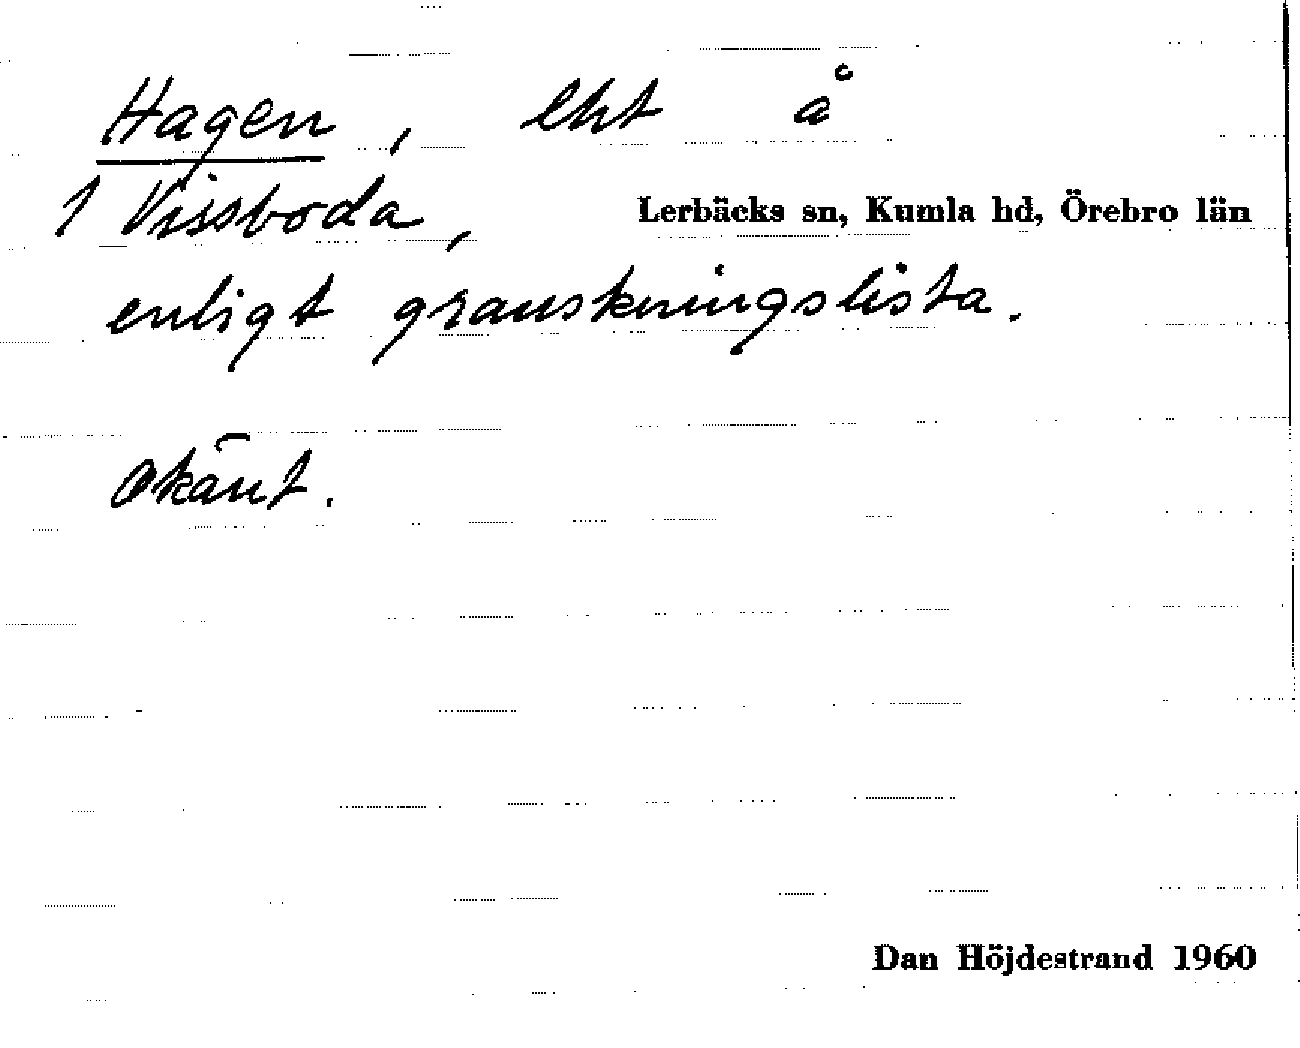 Hagen, lht å
1 Vissboda, Lerbäcks sn, Kumla hd, Örebro län
enligt granskningslista.
Okänt.
Dan Höjdestrand 1960